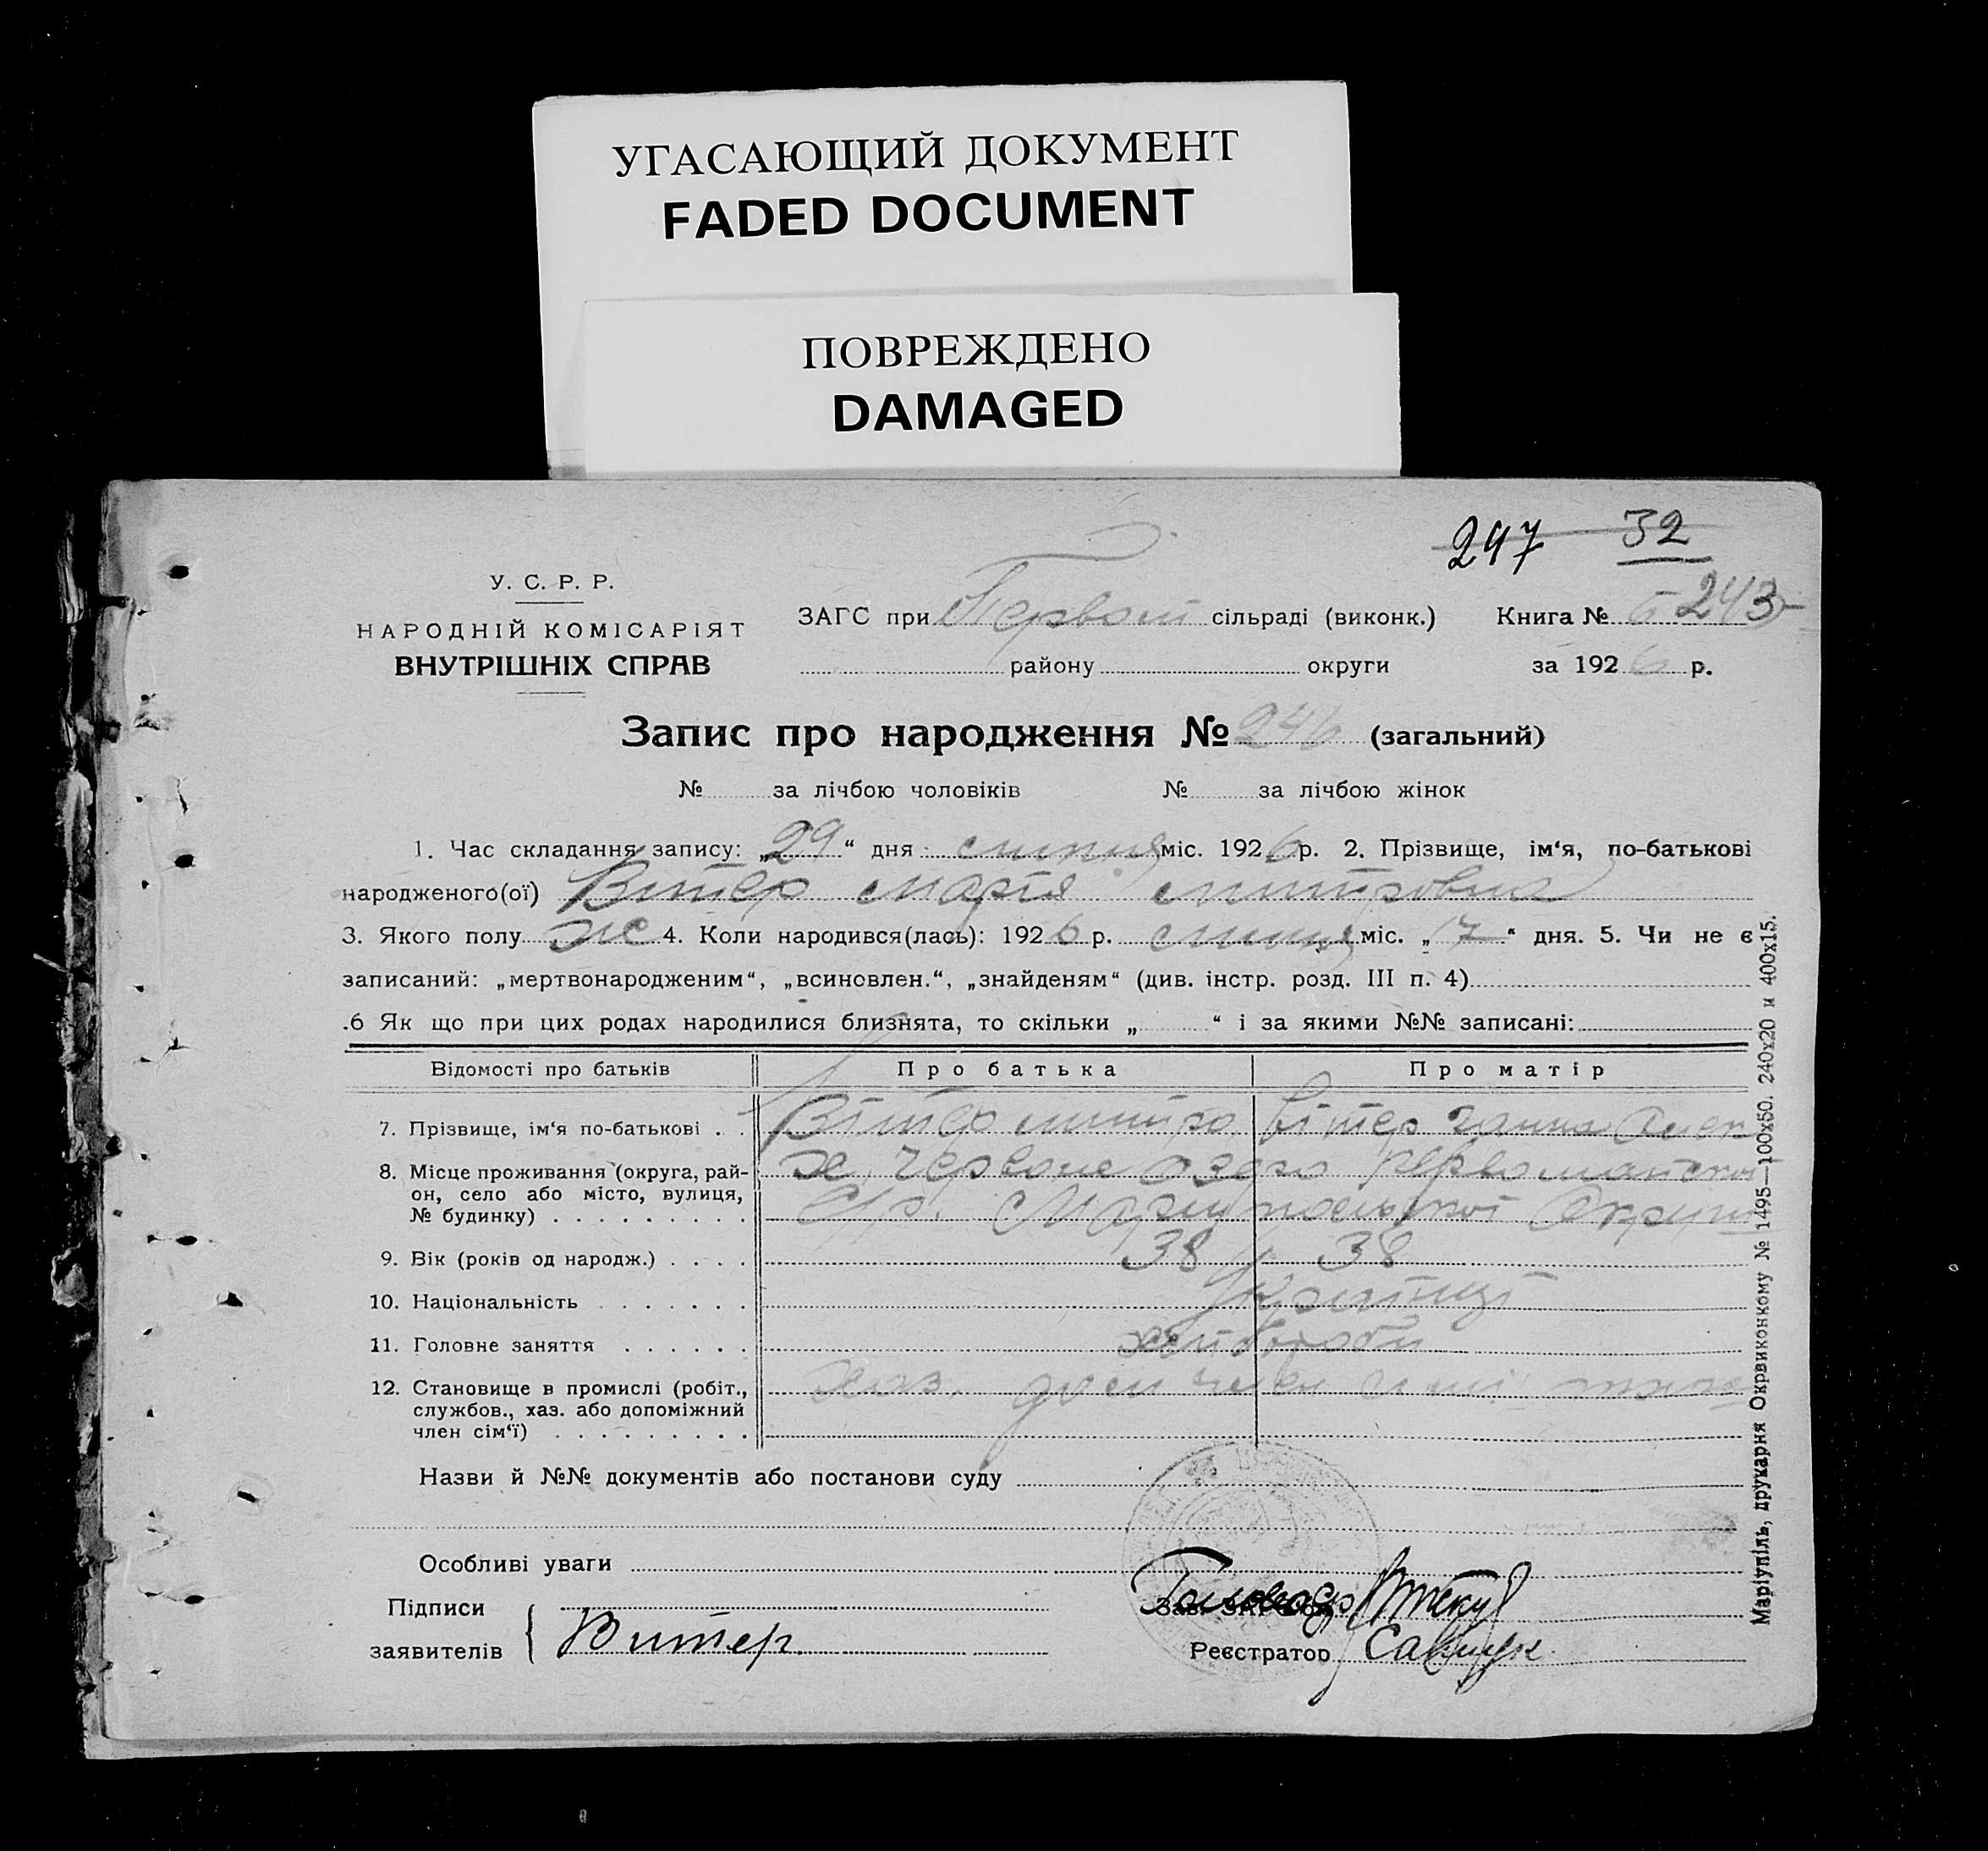 УГАСАЮЩИЙ ДОКУМЕНТ
FADED DOCUMENT
ПОВРЕЖДЕНО
DAMAGED
247 32
У. С. Р. Р.
НАРОДНІЙ КОМІСАРІЯТ
ВНУТРІШНІХ СПРАВ
ЗАГС при Первом сільраді (виконк.) Книга № 243
району округи за 1926 р.
Запис про народження № 246 (загальний)
№ за лічбою чоловіків № за лічбою жінок
1. Час складання запису: „29“ дня липня міс. 1926 р. 2. Прізвище, ім‘я, по-батькові
народженого(ої) Вітер Марія Митровна
3. Якого полу Ж 4. Коли народився(лась): 1926 р. липня міс. „17“ дня. 5. Чи не є
записаний: „мертвонародженим“, „всиновлен.“, „знайденям“ (див. інстр. розд. III п. 4)
.6 Як що при цих родах народилися близнята, то скільки „ “ і за якими №№ записані:
Відомості про батьків Про батька Про матір
7. Прізвище, ім‘я по-батькові . . Вітер Митро Вітер Ганна
8. Місце проживання (округа, рай- х. Червоне Озеро Первоманської
он, село або місто, вулиця, С/р. Маріупольської Округи
№ будинку) . . . . . . . . .
9. Вік (років од народж.) . . . . 38 38
10. Національність . . . . . . . Українці
11. Головне заняття . . . . . . хліборобі
12. Становище в промислі (робіт., Хаз. доп член сімї
службов., хаз. або допоміжний
член сім‘ї) . . . . . . . . .
Назви й №№ документів або постанови суду
Особливі уваги
Підписи
заявителів { Витер.
Реєстратор Савчук
Маріупіль, друкарня Окрвиконкому № 1495—100х50. 240х20 и 400х15.